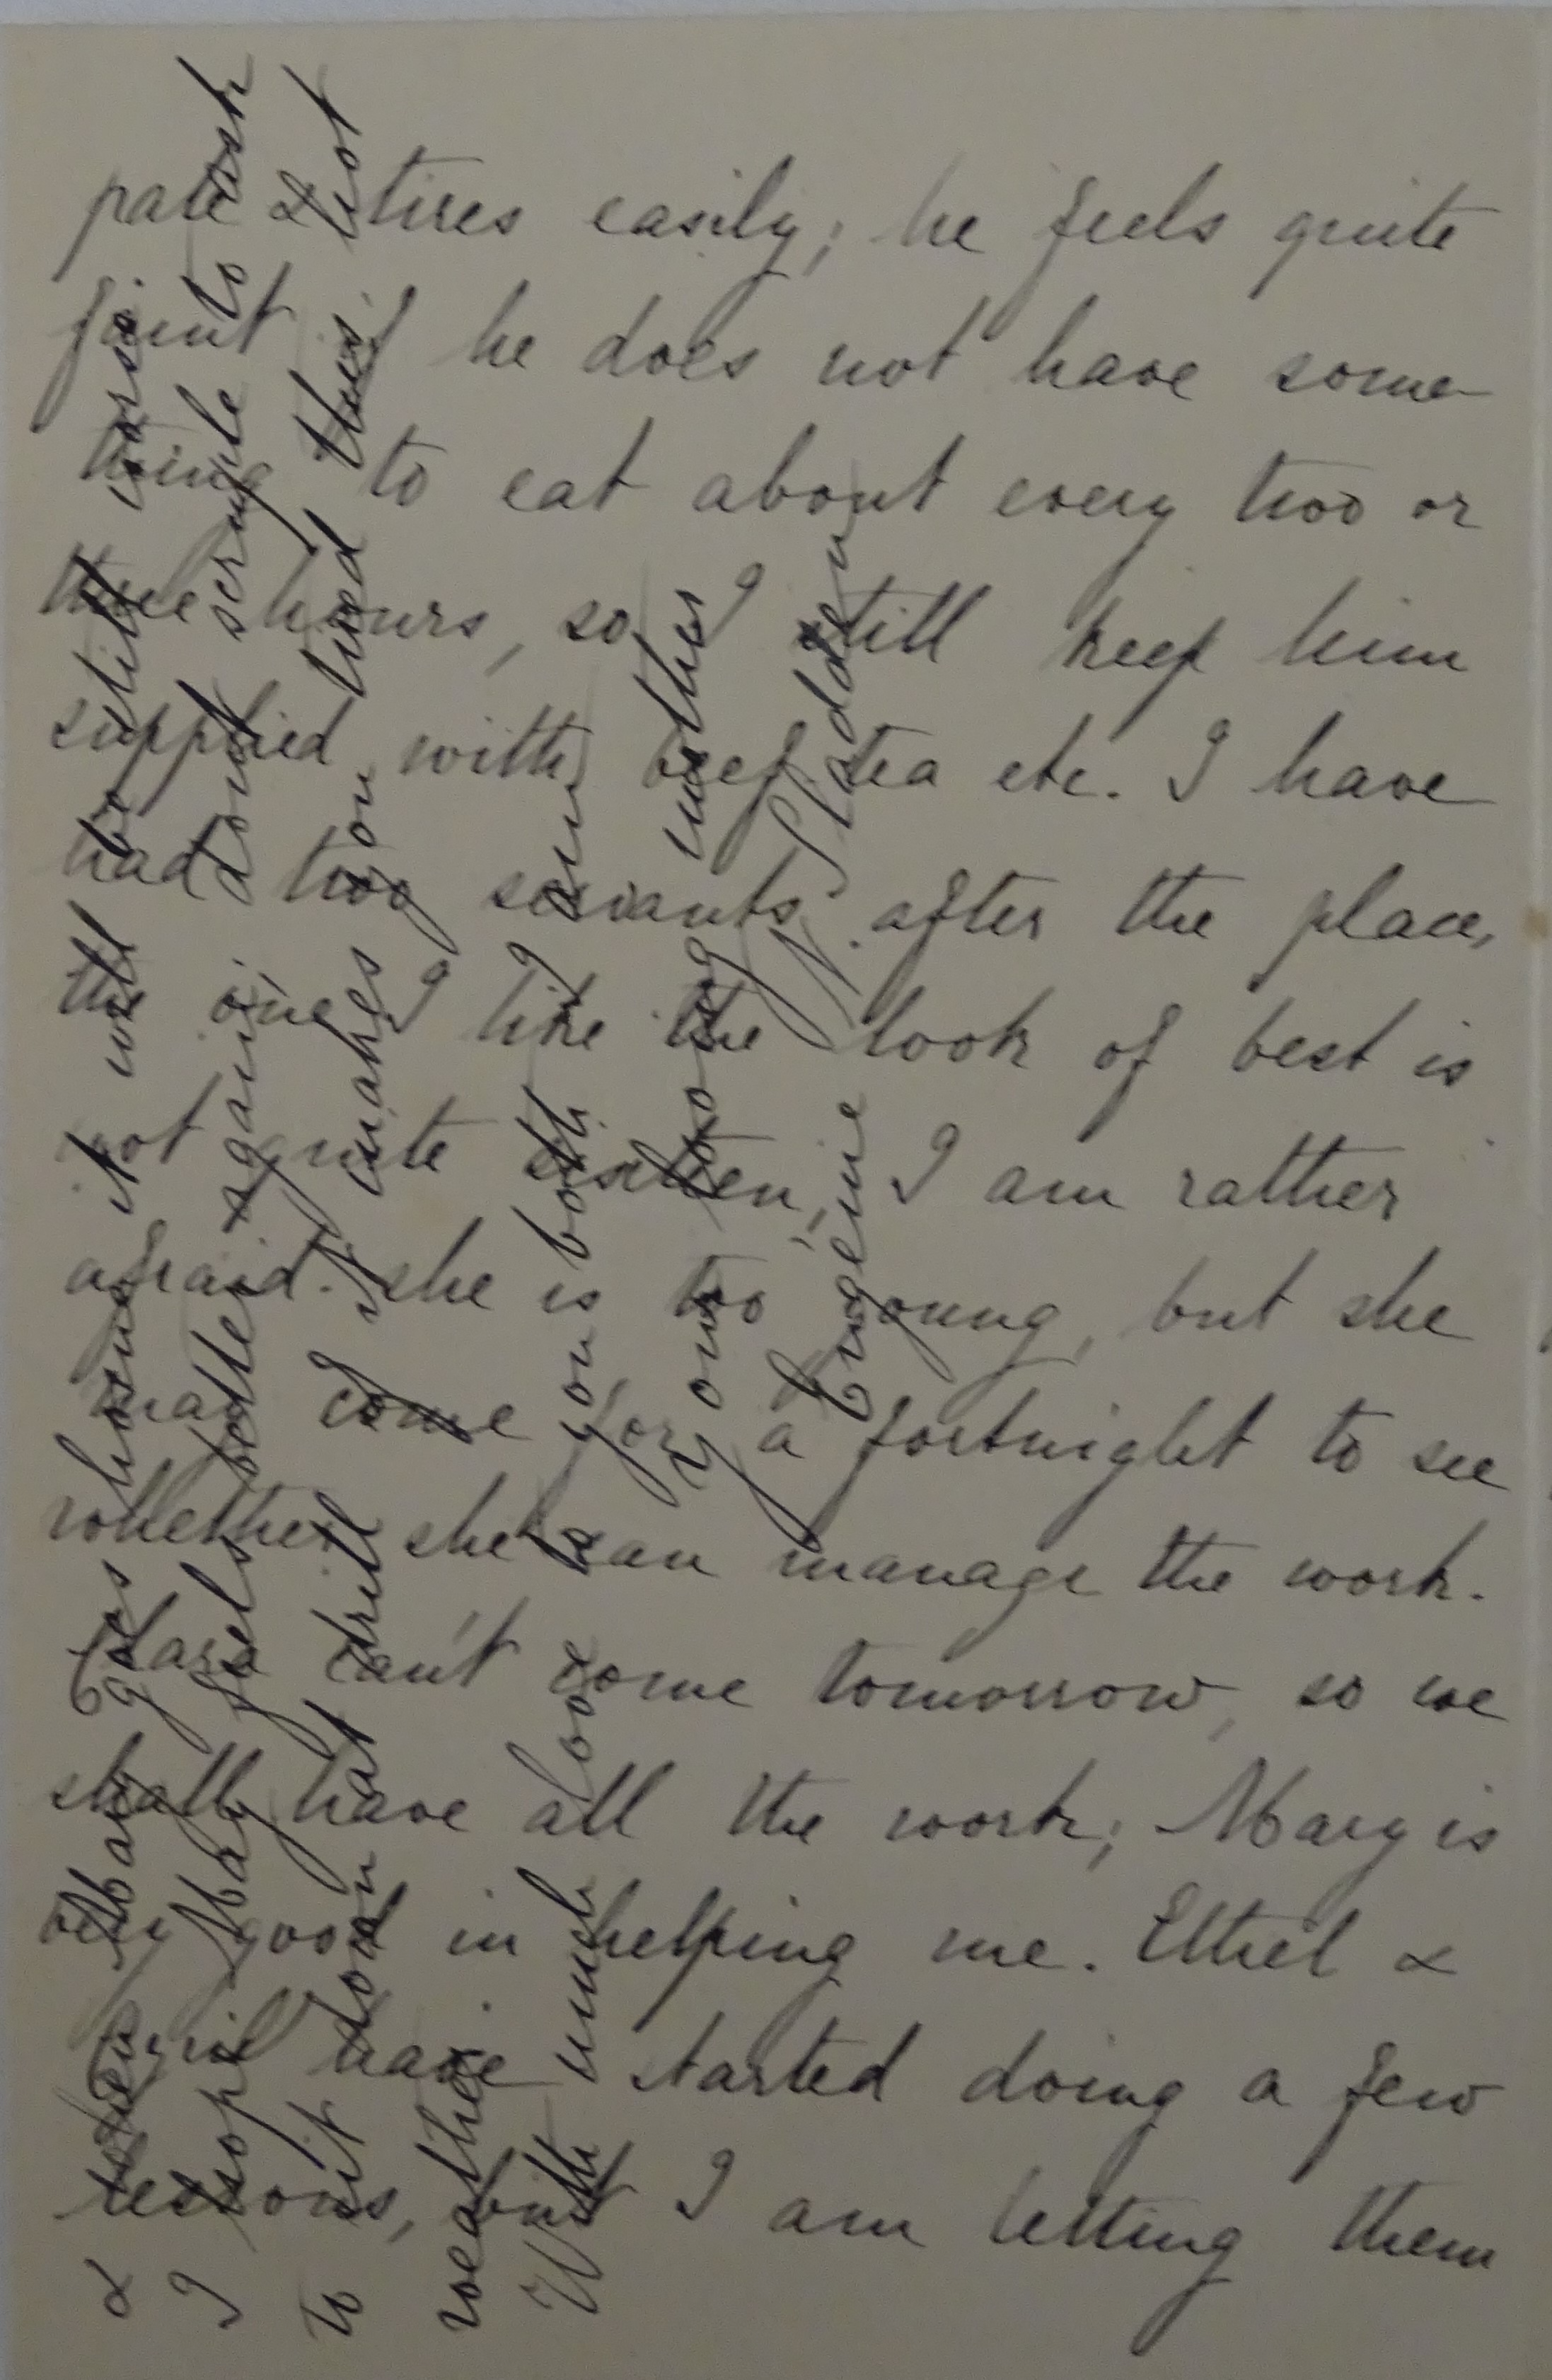 pale & tires easily; he feels quite
faint if he does not have some-
thing to eat about every two or
three hours, so I still keep him
supplied with beef tea etc. I have
had two servants after the place,
the one I like the look of best is
not quite sixteen, I am rather
afraid she is too young, but she
may come for a fortnight to see
whether she can manage the work.
Clara can't come tomorrow, so we
shall have all the work; Mary is
very good in helping me. Ethel &
Cyril have started doing a few
lessons, but I am letting them
& when Mary goes home it will be still worse.
I hope May feels better again; don't scruple to ask
to sit down at drill if it makes you tired this hot
weather
With much love to you both I am
your loving mother
Eugenie N. Sladden